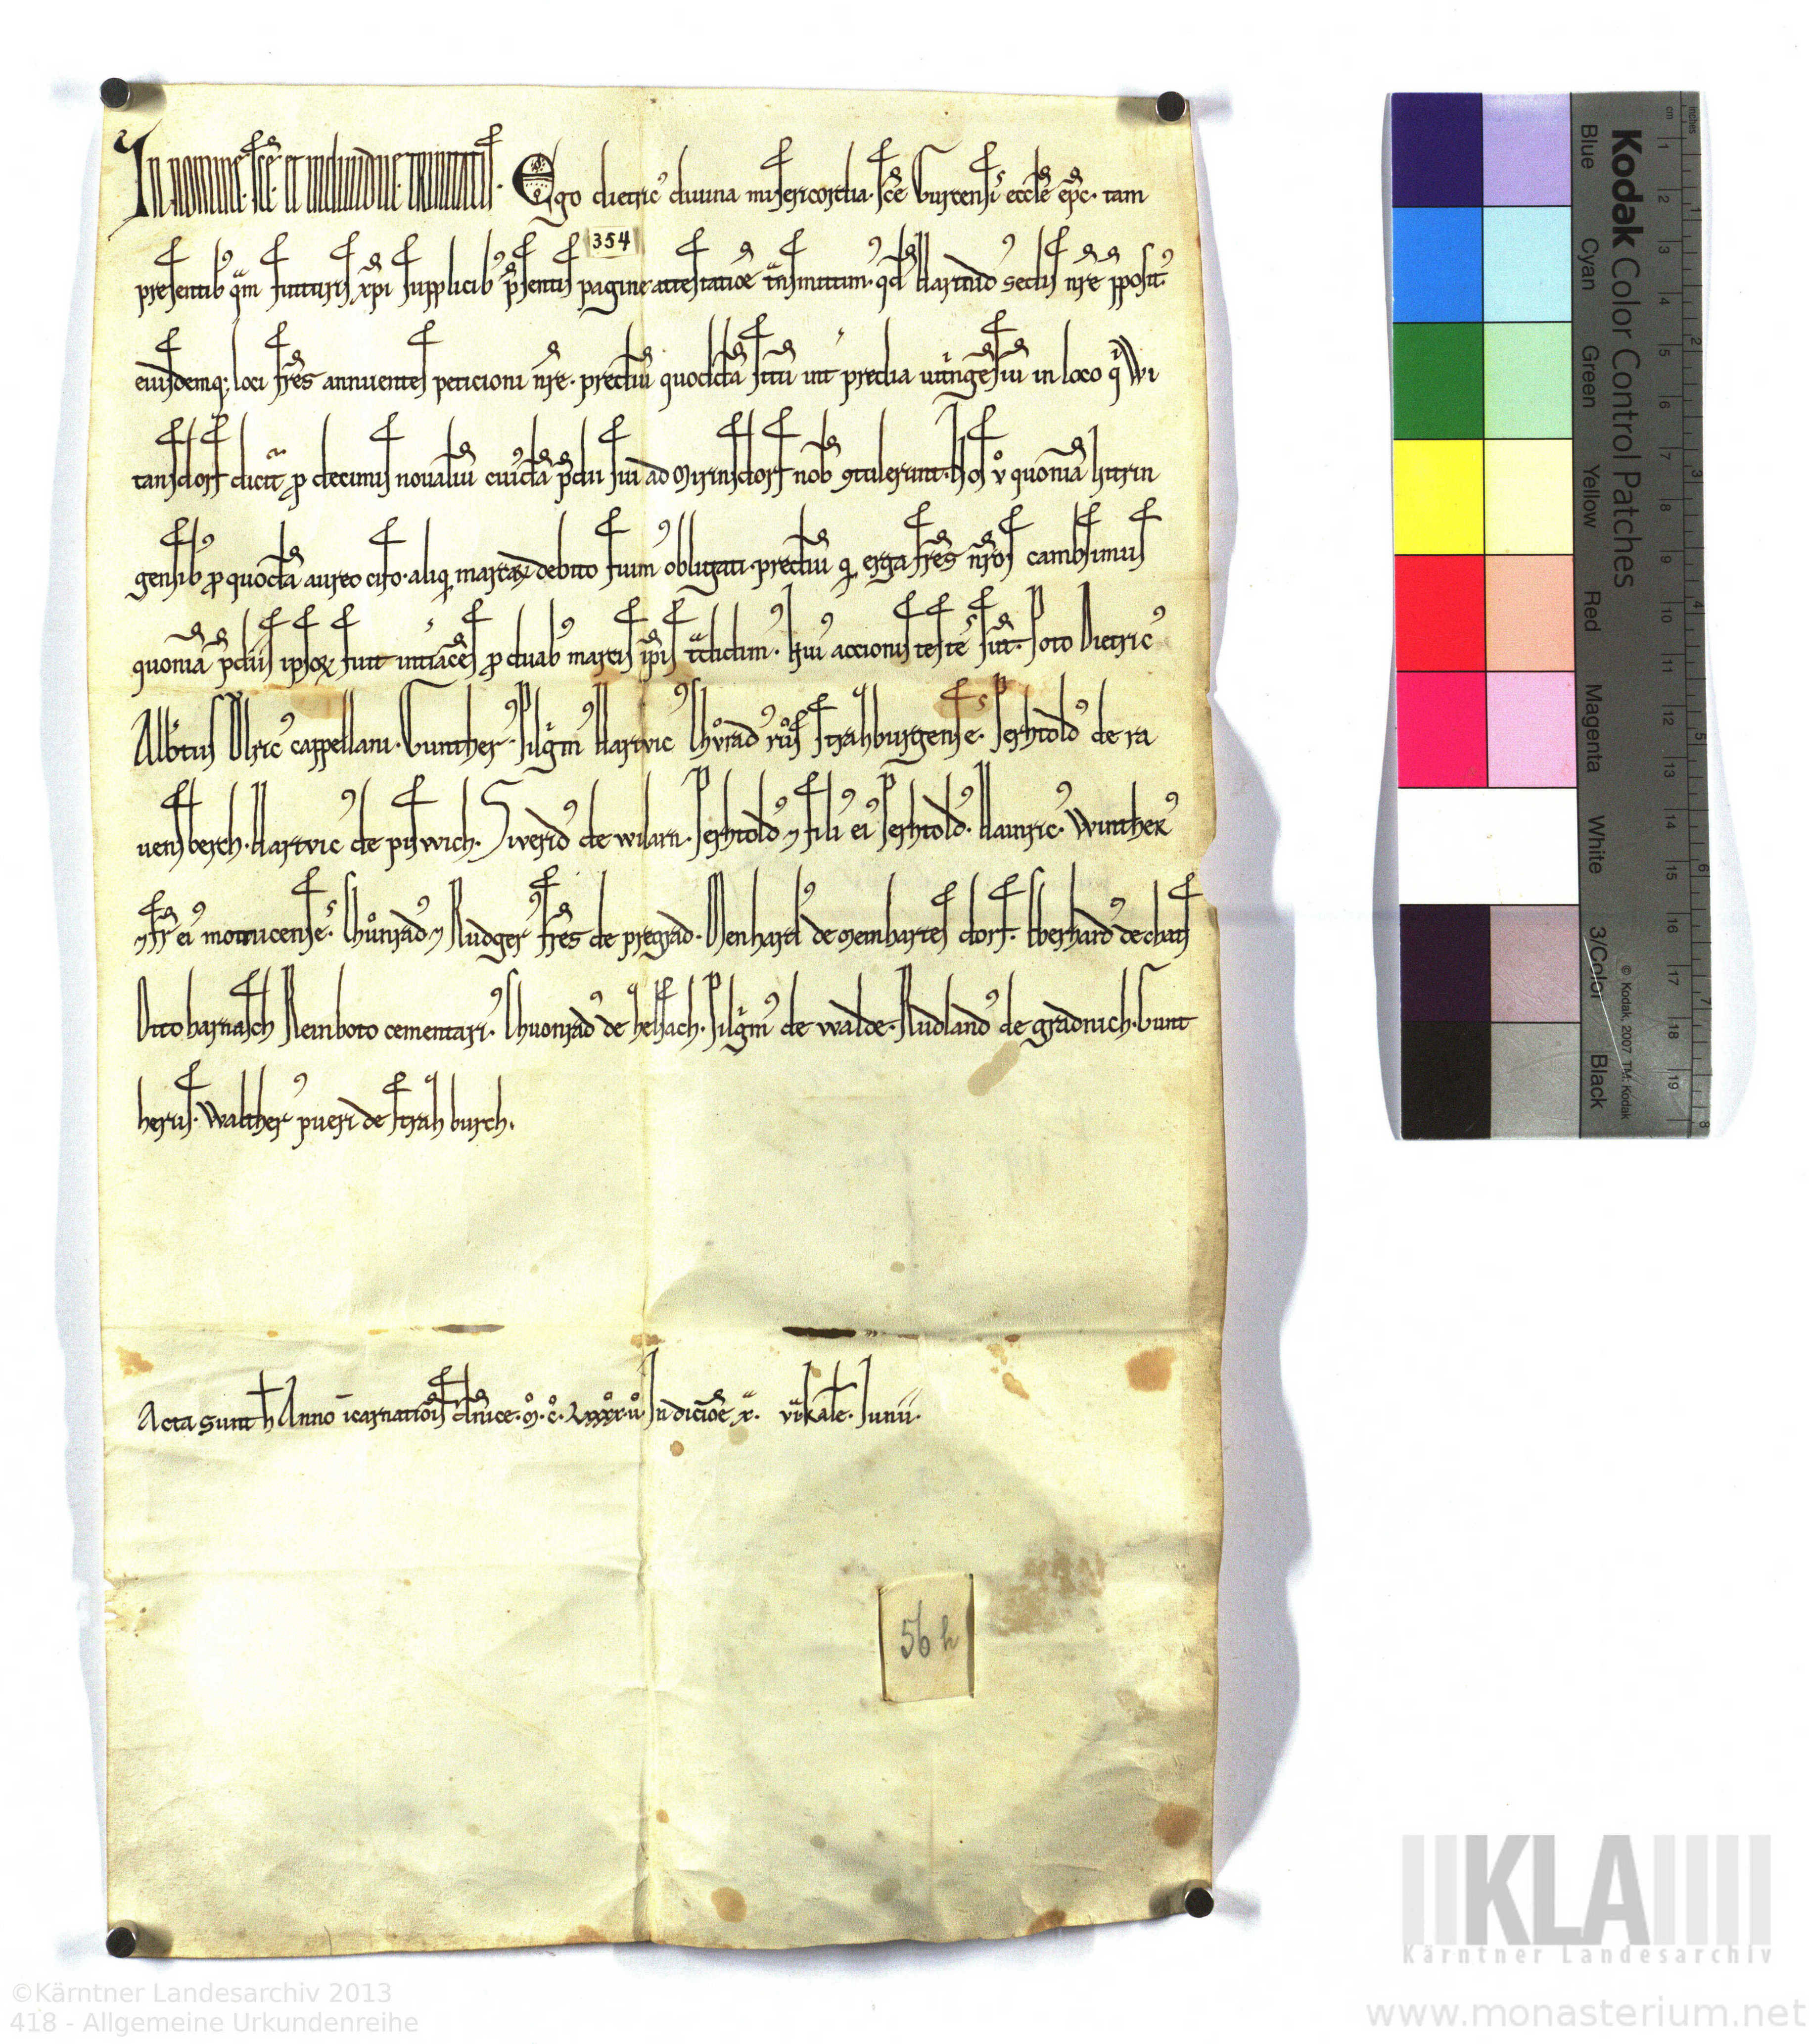 In nomine sc̄e et individue trinitatis. Ego dietric' diuina misericordia sc̄e Gurcensis eccl̄e ep̄c. tam
354
presentib' q̈m futuris xp̄i supplicib' p̄sentis pagine attestatiōe t̄nsmittim'. qd̄ Hartnid' sedis nr̄e p̱posit'
eiusdemq; loci fr̄es annuentes peticioni nr̄e. prediū quoddā sitū int' predia in loco q̇ Wi
tansdorf dicit̄ ꝓ decimis novaliū cui'dā p̄dii sui ad Mirinsdorf nob̄ ꝯtulerunt. Hos v̊ quoniā hitrin
gensib' ꝓ quodā aureo cifo. aliq̣ marcaꝝ debito fuim' obligati. prediū q̣ erga fr̄es nr̄os cambsimus
quoniā p̄diis ipsoꝝ fuit int'iac̄es ꝓ duab' marcis ip̄is t̄didim'. Hui' accionis testes sūt. Poto Dietric'
Alb'tus Ulric' cappellani. Gunther' Pilg̊im' Hartvic' Chůrad' ruf' strahburgenses. Perhtold' de ra
uensberch. Hartvic' de piswich. Siverid' de wilarn. Perhtold' ⁊ fili' ei' Perhtold'. Hainric'. Winther'
⁊ fr̄ ei' motnicenses. Chůnrad' ⁊ Rudger' fr̄es de pregrad. Menhard' de Meinhartes dorf. Eberhard' de chats
Otto harnasch Reinboto cementari'. Chuonrad' de helfach. Pilg̊im' de walde. Rudland' de gradnich. Gunt
herus. Walther' pueri de strahburch.
Acta sunt h̄ Anno īcarnatiōis d̄nice. M̊. C̊. Lxxxx. ů. Indiciōe x. kal̄e. Junii.
56 h
Kodak Color Control Patches
Blue
Cyan
Green
Yellow
Red
Magenta
White
3/Color
Black
© Kodak, 2007 TM: Kodak
cm
Inches
1 2 3 4 5 6 7 8 9 10 11 12 13 14 15 16 17 18 19
1 2 3 4 5 6 7 8
KLA
Kärntner Landesarchiv
©Kärntner Landesarchiv 2013
418 - Allgemeine Urkundenreihe
www.monasterium.net